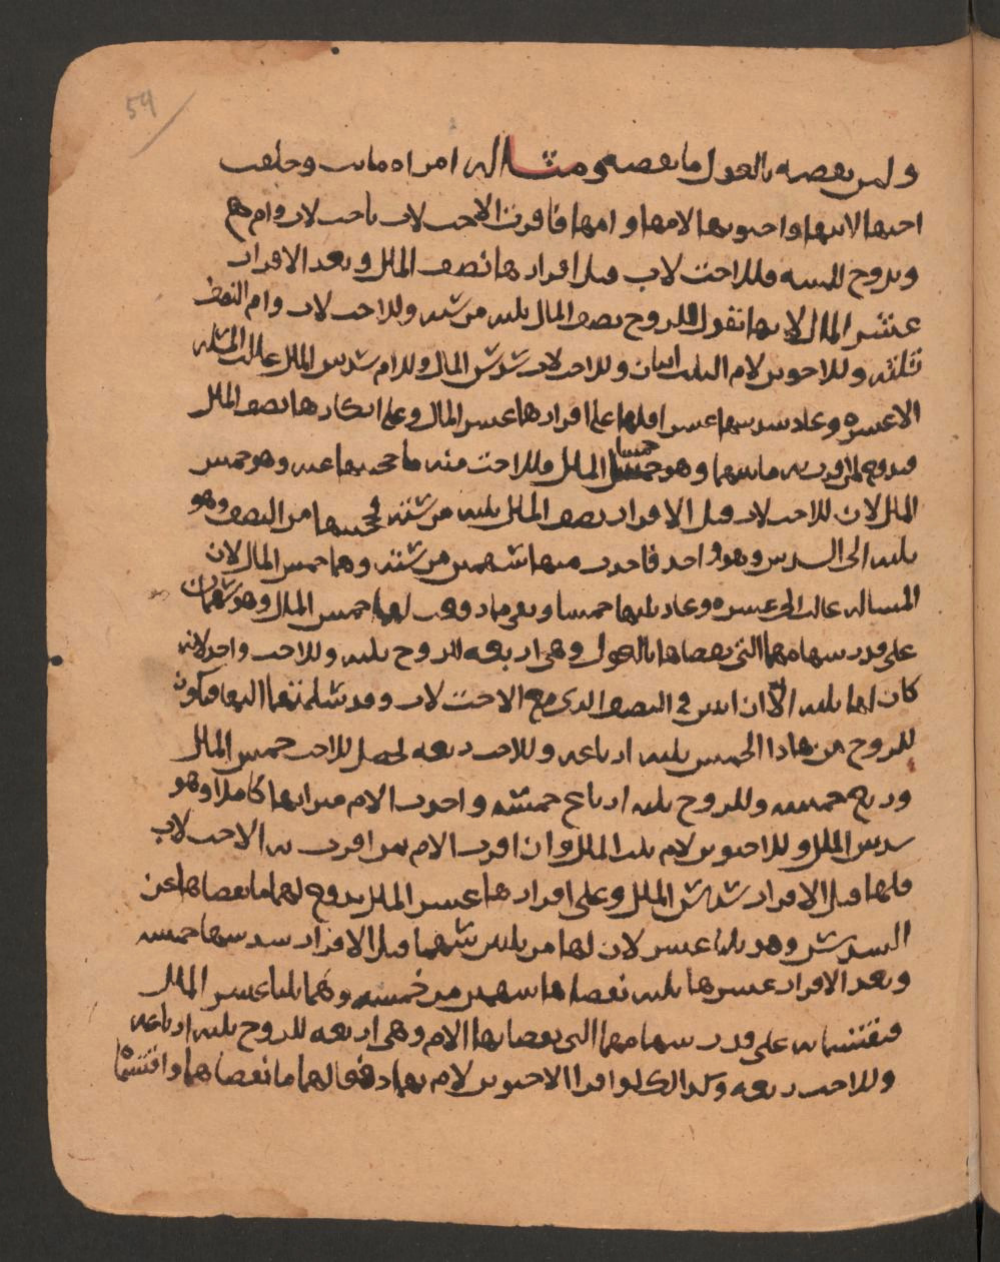 54
ولمن نقصه بالعول ما نقصه ومثاله امراه ماتت وخلفت
اختها لابيها واختويها لامها وامها فاقرت الاخت لاب باخت لاب وام هم
وبزوج للميته فللاخت لاب قبل اقرارها نصف المال وبعد الاقرار
عشر المال لانها تقول للزوج نصف المال ثلثه من سته وللاخت لاب وام النصف
ثلثه وللاخوين لام الثلث اثنان وللاخت لاب سدس المال وللام سدس المال عالت المسله
الاعشره وعاد سدسها عشر افلها على اقرارها عشر المال وعلى انكارها نصف المال
فيدفع لمن اقرت به ما بينهما وهو خمسا المال فللاخت منه ما حجبها عنه وهو خمس
المال لان للاخت لاب قبل الاقرار نصف المال ثلثه من سته فحجبها من النصف وهو
ثلثه الى السدس وهو واحد فاخذت منها سهمين من سته وهما خمس المال لان
المساله عالت الى عشره وعاد ثلثها خمسا وبقى مما دفعت لهما خمس المال وهو سهمان
على قدر سهامهما التى نقصاها بالعول وهى اربعه للزوج ثلثه وللاخت واحد لانه
كان لها ثلثه الا ان اثنين فى النصف الذى مع الاخت لاب وقد سلمتهما اليها فيكون
للزوج من هاذا الخمس ثلثه ارباعه وللاخت ربعه يحصل للاخت خمس المال
وربع خمسه وللزوج ثلثه ارباع خمسه واخذت الام ميراثها كاملا وهو
سدس المال وللاخوين لام ثلث المال وان اقرت الام بمن اقرت به الاخت لاب
فلها قبل الاقرار سدس المال وعلى اقرارها عشر المال يدفع لهما ما نقصاها عن
السدس وهو ثلثا عشر لان لها من ثلثين سهما قبل الاقرار سدسها خمسه
وبعد الاقرار عشرها ثلثه نقصاها سهمين من خمسه وهما ثلثا عشر المال
فيقتسمانه على قدر سهامهما التى نقصا بها الام وهى اربعه للزوج ثلثه ارباعه
وللاخت ربعه وكذالك لو اقرا الاخوين لام بهما دفعا لهما ما نقصاهما واقتسماه